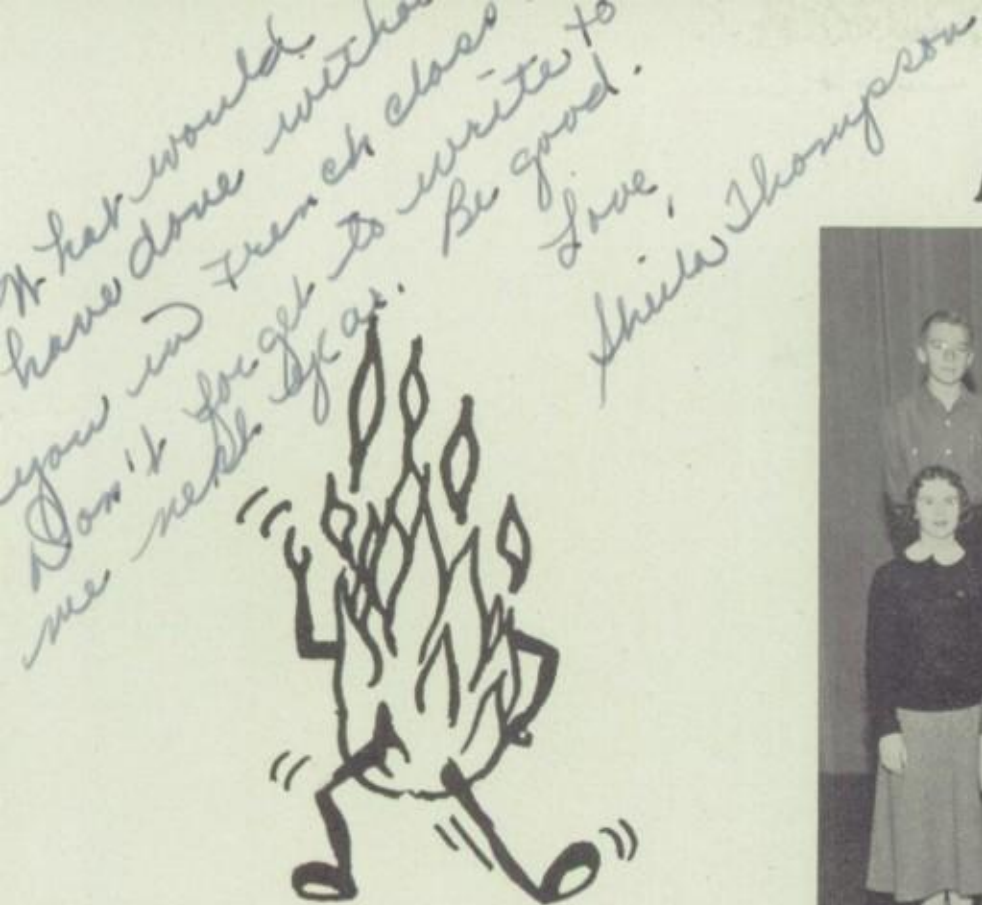 What would
have done
you in French class
Don't forget to write to
me next year. Be good.
Love,
Sheila Thompson